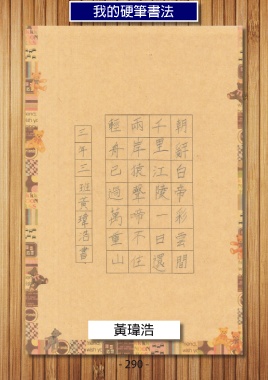 我的硬筆書法
朝辭白帝彩雲間
千里江陵一日還
兩岸猿聲啼不住
輕舟已過萬重山
二年三班黃瑋浩書
黃瑋浩
- 290 -